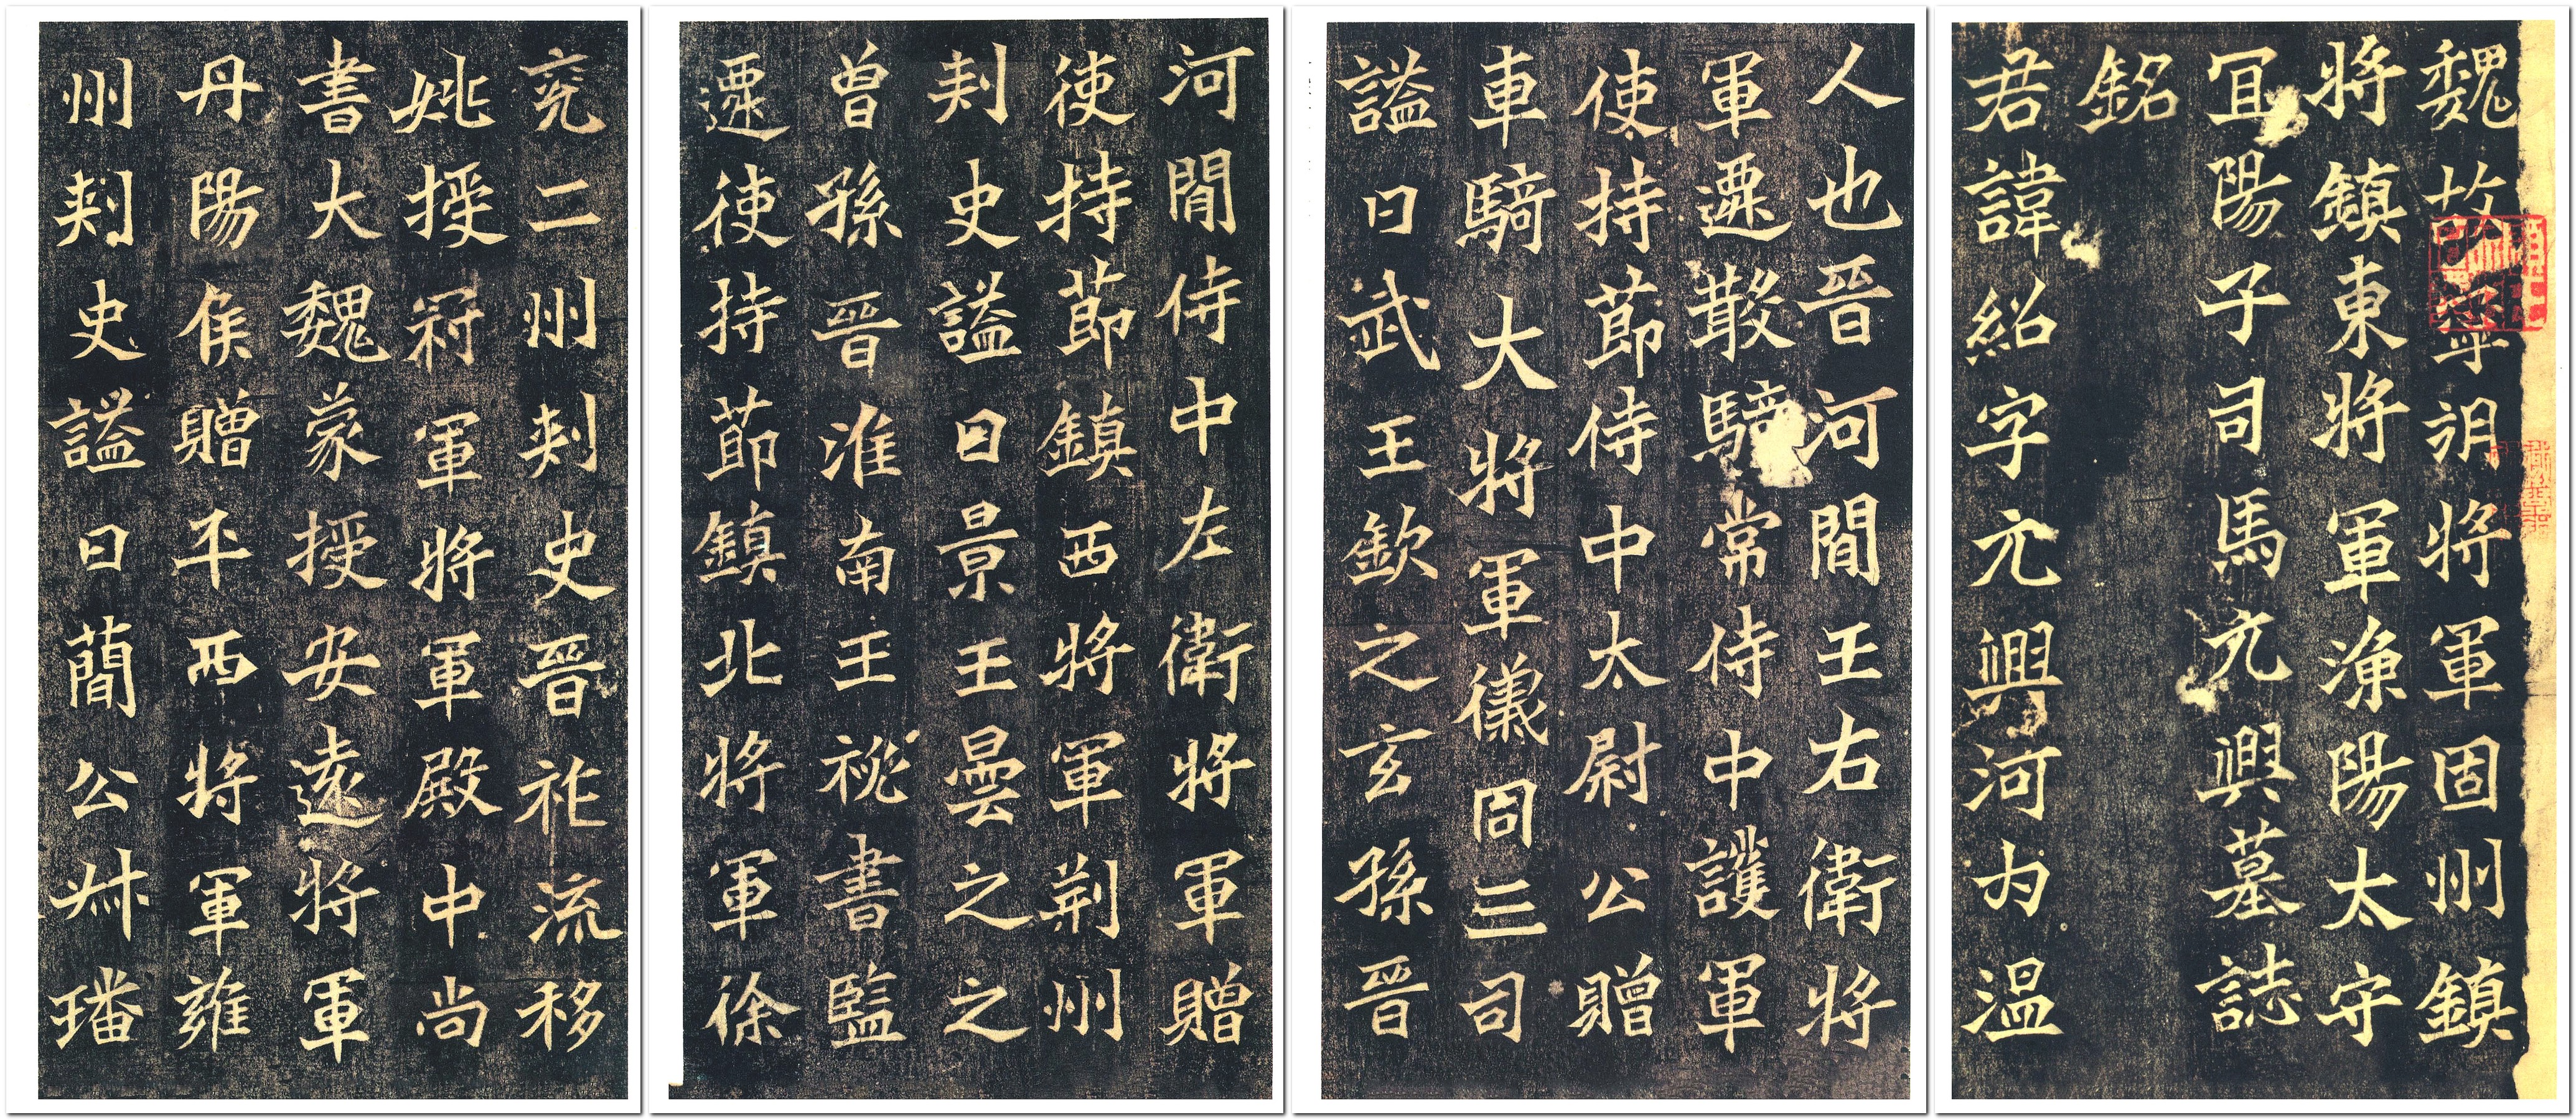 魏故寧朔將軍固州鎮
將鎮東將軍漁陽太守
冝陽子司馬元興墓誌
銘
君諱紹字元興河内温
人也晉河間王右衛將
軍遷散騎常侍中護軍
使持節侍中太尉公贈
車騎大將軍儀同三司
謚曰武王欽之玄孫晉
河間侍中左衛將軍贈
使持節鎮西將軍荊州
刾史謚曰景王曇之之
曾孫晉淮南王祕書監
遷使持節鎮北將軍徐
兖二州刾史晉祚流移
姚授冠軍將軍殿中尚
書大魏蒙授安遠將軍
丹陽侯贈平西將軍雍
州刾史謚曰蕳公叔璠